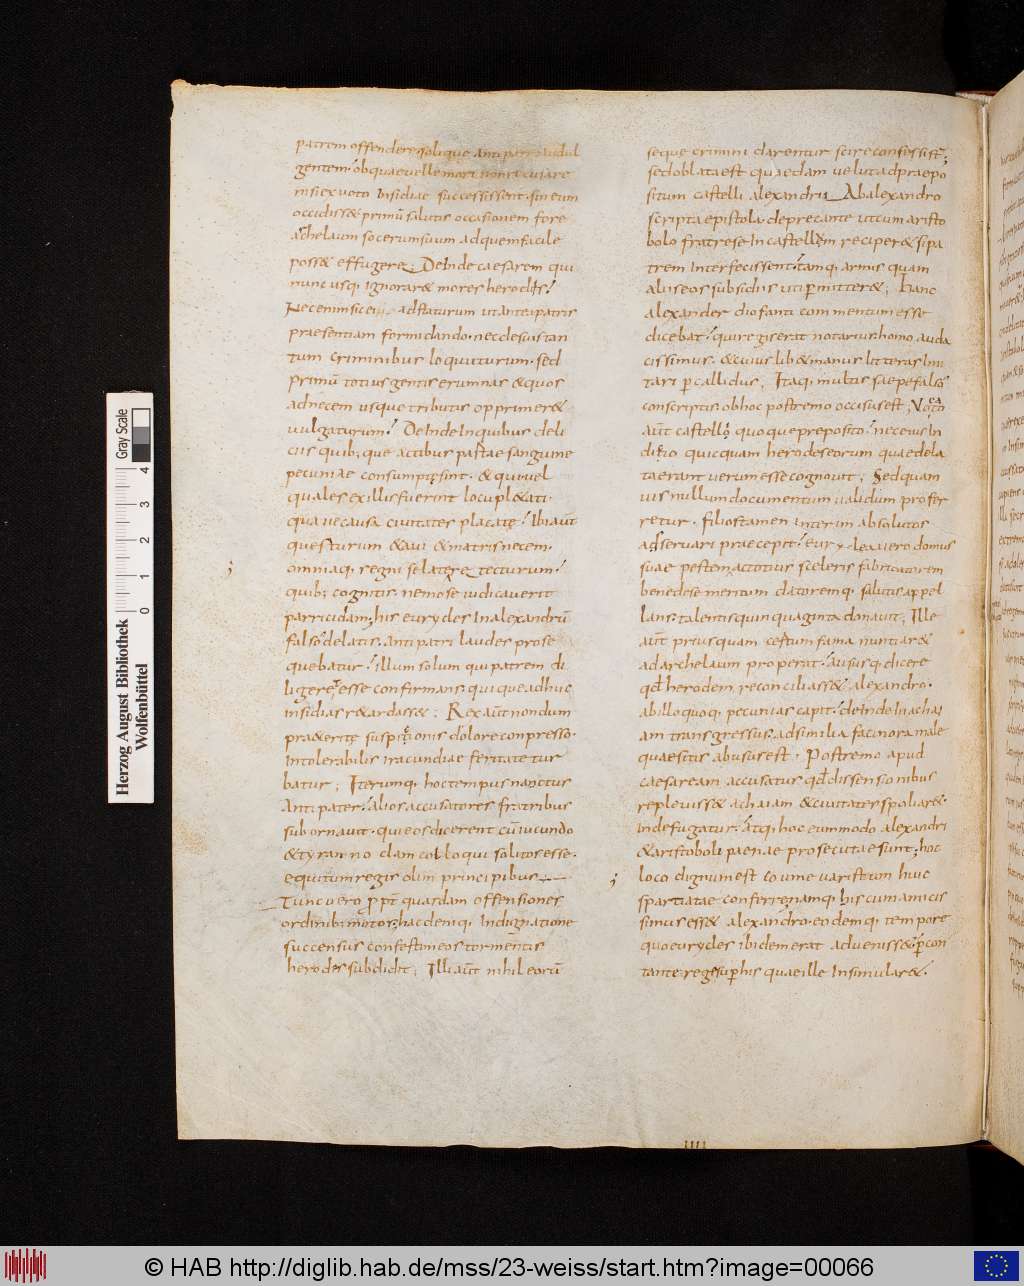 patrem offendere; solique antipatro adul
gentem; ob quae velle mori non recusare
insi ex voto insidiae successissent. sin eum
occidiss& primū salutis occasionem fore
archelaum socerum suum ad quem facile
poss& effugere. Deinde caesarem qui
nunc usq; ignorar& mores herodis;
Nec enim sicut ad staturum ut ante patris
praesentiam formidando. nec de suis tan
tum criminibus loquuturum. sed
primū totius gentis erumnas & quos
ad necem usque tributis opprimer&
vulgaturum; Deinde in quibus deli
ciis quib;que actibus pastae sanguine
pecuniae consumptę sint. & qui vel
quales ex illis fuerint locupl&ati.
quave causa civitates placatę; Ibi aūt
questurum & avi & matris necem.
omniaq; regni scelata retecturum;
quib; cognitis nemo se iudicaverit
parricidam; his eurycles in alexandrū
falso delatis. antipatri laudes prose
quebatur; illum solum qui patrem di
ligeret esse confirmans; qui que adhuc
insidias r&ardass&; Rex aūt nondum
pra&eritę suspitionis dolore conpresso.
intolerabilis iracundiae feritate tur
batur; Iterumq; hoc tempus nanctus
antipater; alios accusatores fratribus
subornavit. qui eos dicerent cū iucundo
& tyranno clam colloqui solitos esse.
equitum regis olim principibus
Tunc vero ppt quasdam offensiones
ordinib; motos; hac deniq; indignatione
succensus confestim eos tormentis
herodes subdidit; Illi aūt nihil eorū
seque crimini darentur scire confessi st;
sed oblata est quaedam velut ad praepo
situm castelli alexandrii Ab alexandro
scripta epistola deprecante ut cum aristo
bolo fratre se in castellum reciper& si pa
trem interfecissent; tamq; armis quam
aliis eos subsidiis uti pmitter&; Hanc
alexander diofanti commentum esse
dicebat; qui regis erat notarius; homo auda
cissimus. & cuius lib& manus litteras imi
tari p callidus; Itaq; multis saepe falso
conscriptis. ob hoc postremo occisus est; Vo ea to
aūt castelli quoque preposito; nec eius in
dicio quicquam herodes eorum quae dela
ta erant verum esse cognovit; Sed quam
vis nullum documentum validum profer
retur. filios tamen interim absolutos
adservari praecepit; euryclea vero domus
suae pestem ac totius sceleris fabricatorem
bene de se meritum datoremq; salutis appel
lans; talentis quinquaginta donavit; Ille
aūt priusquam certum fama nuntiar&
ad archelaum properat; ausus q; dicere
qđ herodem reconciliass& alexandro.
ab illo quoq; pecunias capit; deinde in achai
am transgressus, ad similia facinora male
quaesitis abusus est; Postremo apud
caesarem accusatus qđ dissensionibus
repleviss& achaiam & civitates spoliar&.
inde fugatur; atq; hoc eum modo alexandri
& aristoboli paenae prosecutae sunt; hoc
loco dignum est coum evaristum huic
spartiatae conferre; namq; his cum amicis
simus ess& alexandro. eodemq; tempore
quo eurycles ibidem erat adveniss&; p con
tante; rege sup his quae ille insimular&.
Gray Scale
4
3
2
1
0
Herzog August Bibliothek
Wolfenbüttel
© HAB http://diglib.hab.de/mss/23-weiss/start.htm?image=00066